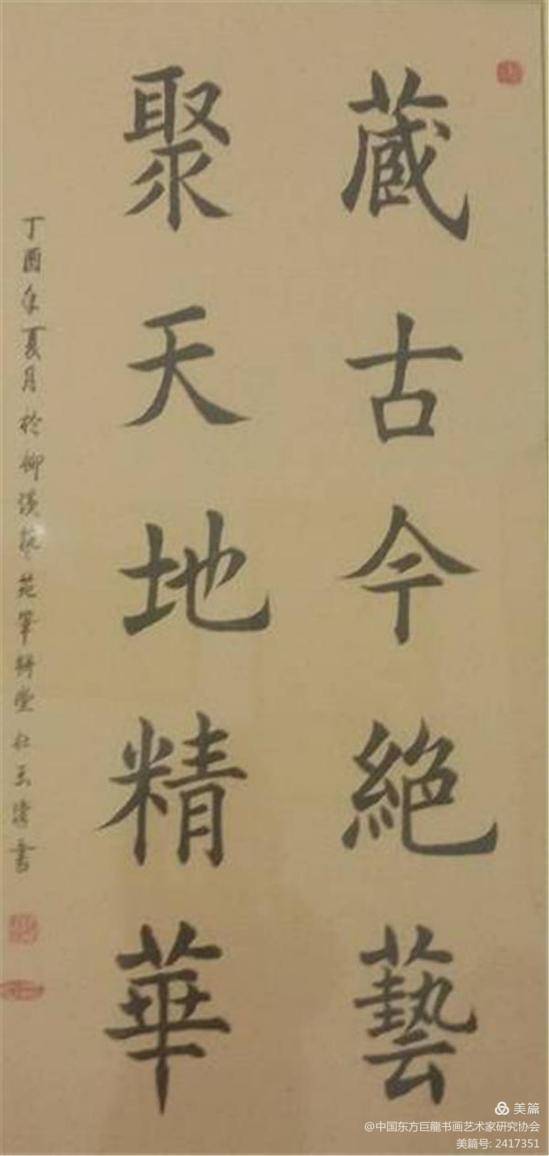 藏古今絶藝
聚天地精華
丁酉年夏月於柳溪藝苑筆耕堂 書
美篇
@中国东方巨龍书画艺术家研究协会
美篇号: 2417351